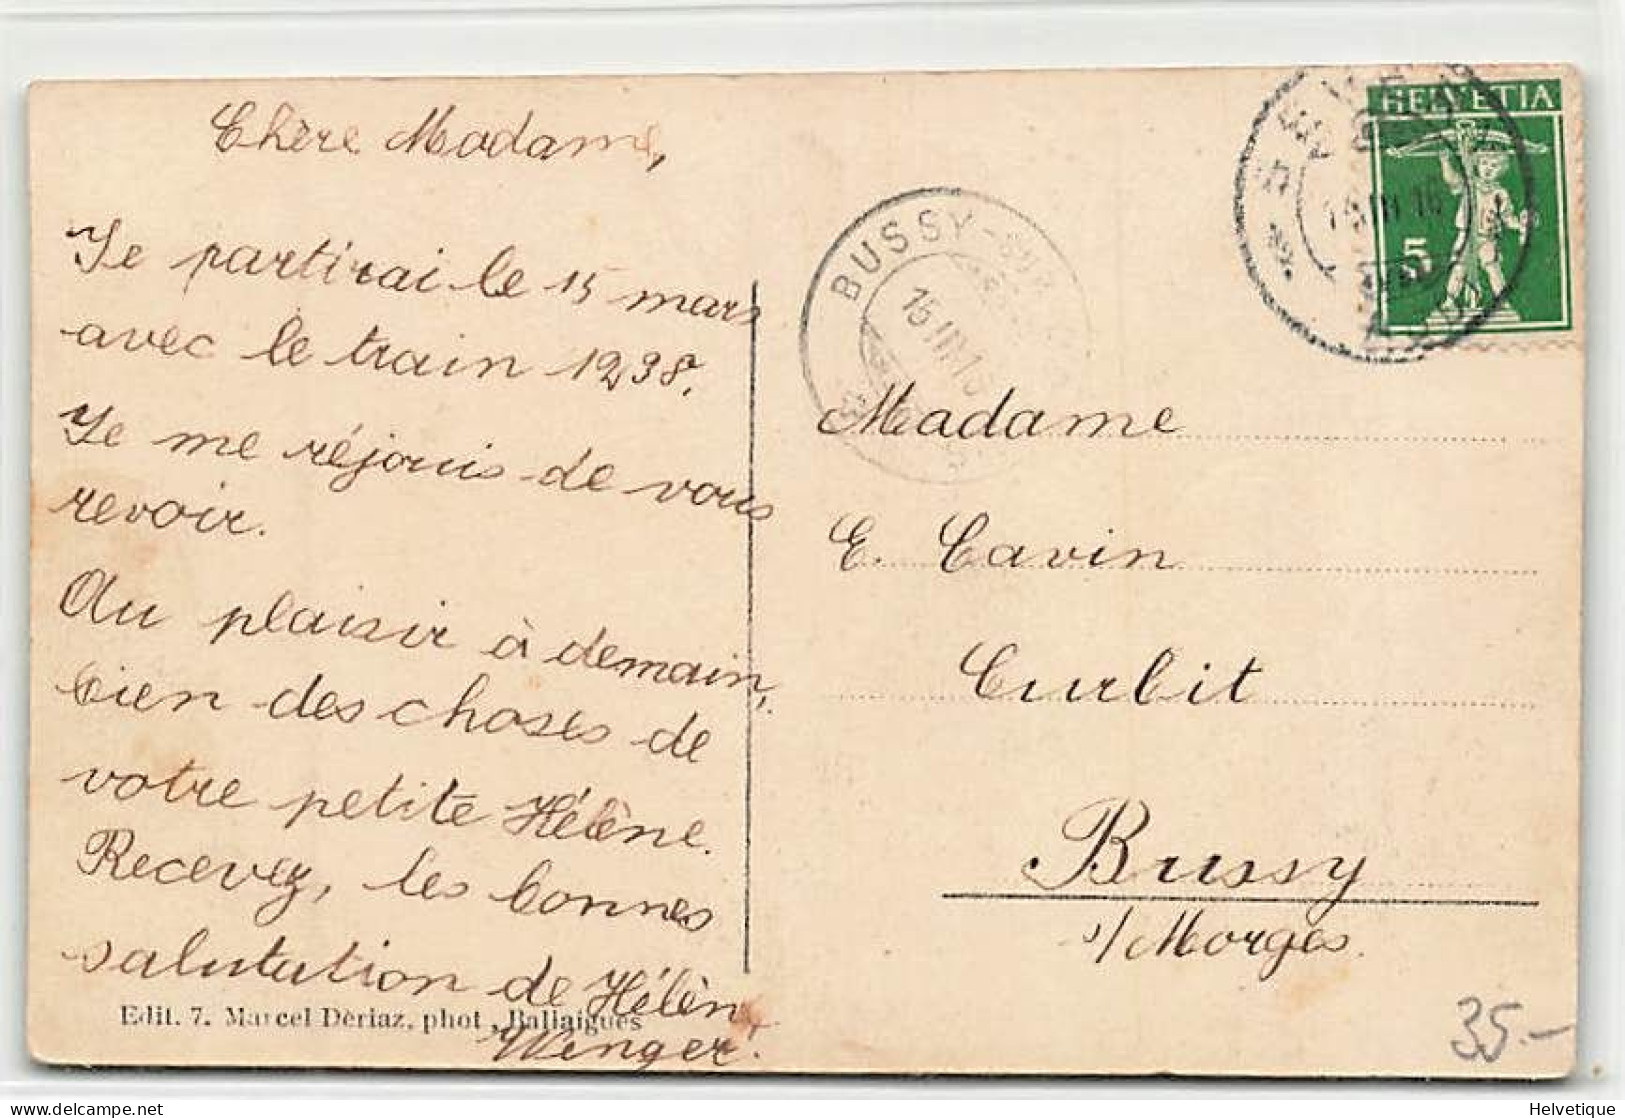 Chère Madame,
Je partirai le 15 mars
avec le train 1238.
Je me réjouis de vous
revoir.
Au plaisir à demain,
bien des choses de
votre petite Hélène.
Recevez, les bonnes
salutation de Hélèn
Wenger.
Edit. 7. Marcel Dèriaz, phot., Ballaigues
BUSSY-SUR-
15 III 1
HELVETIA
5
Madame
E. Cavin
Curbit
Bussy
s/Morges.
35.-
delcampe.net
Helvetique